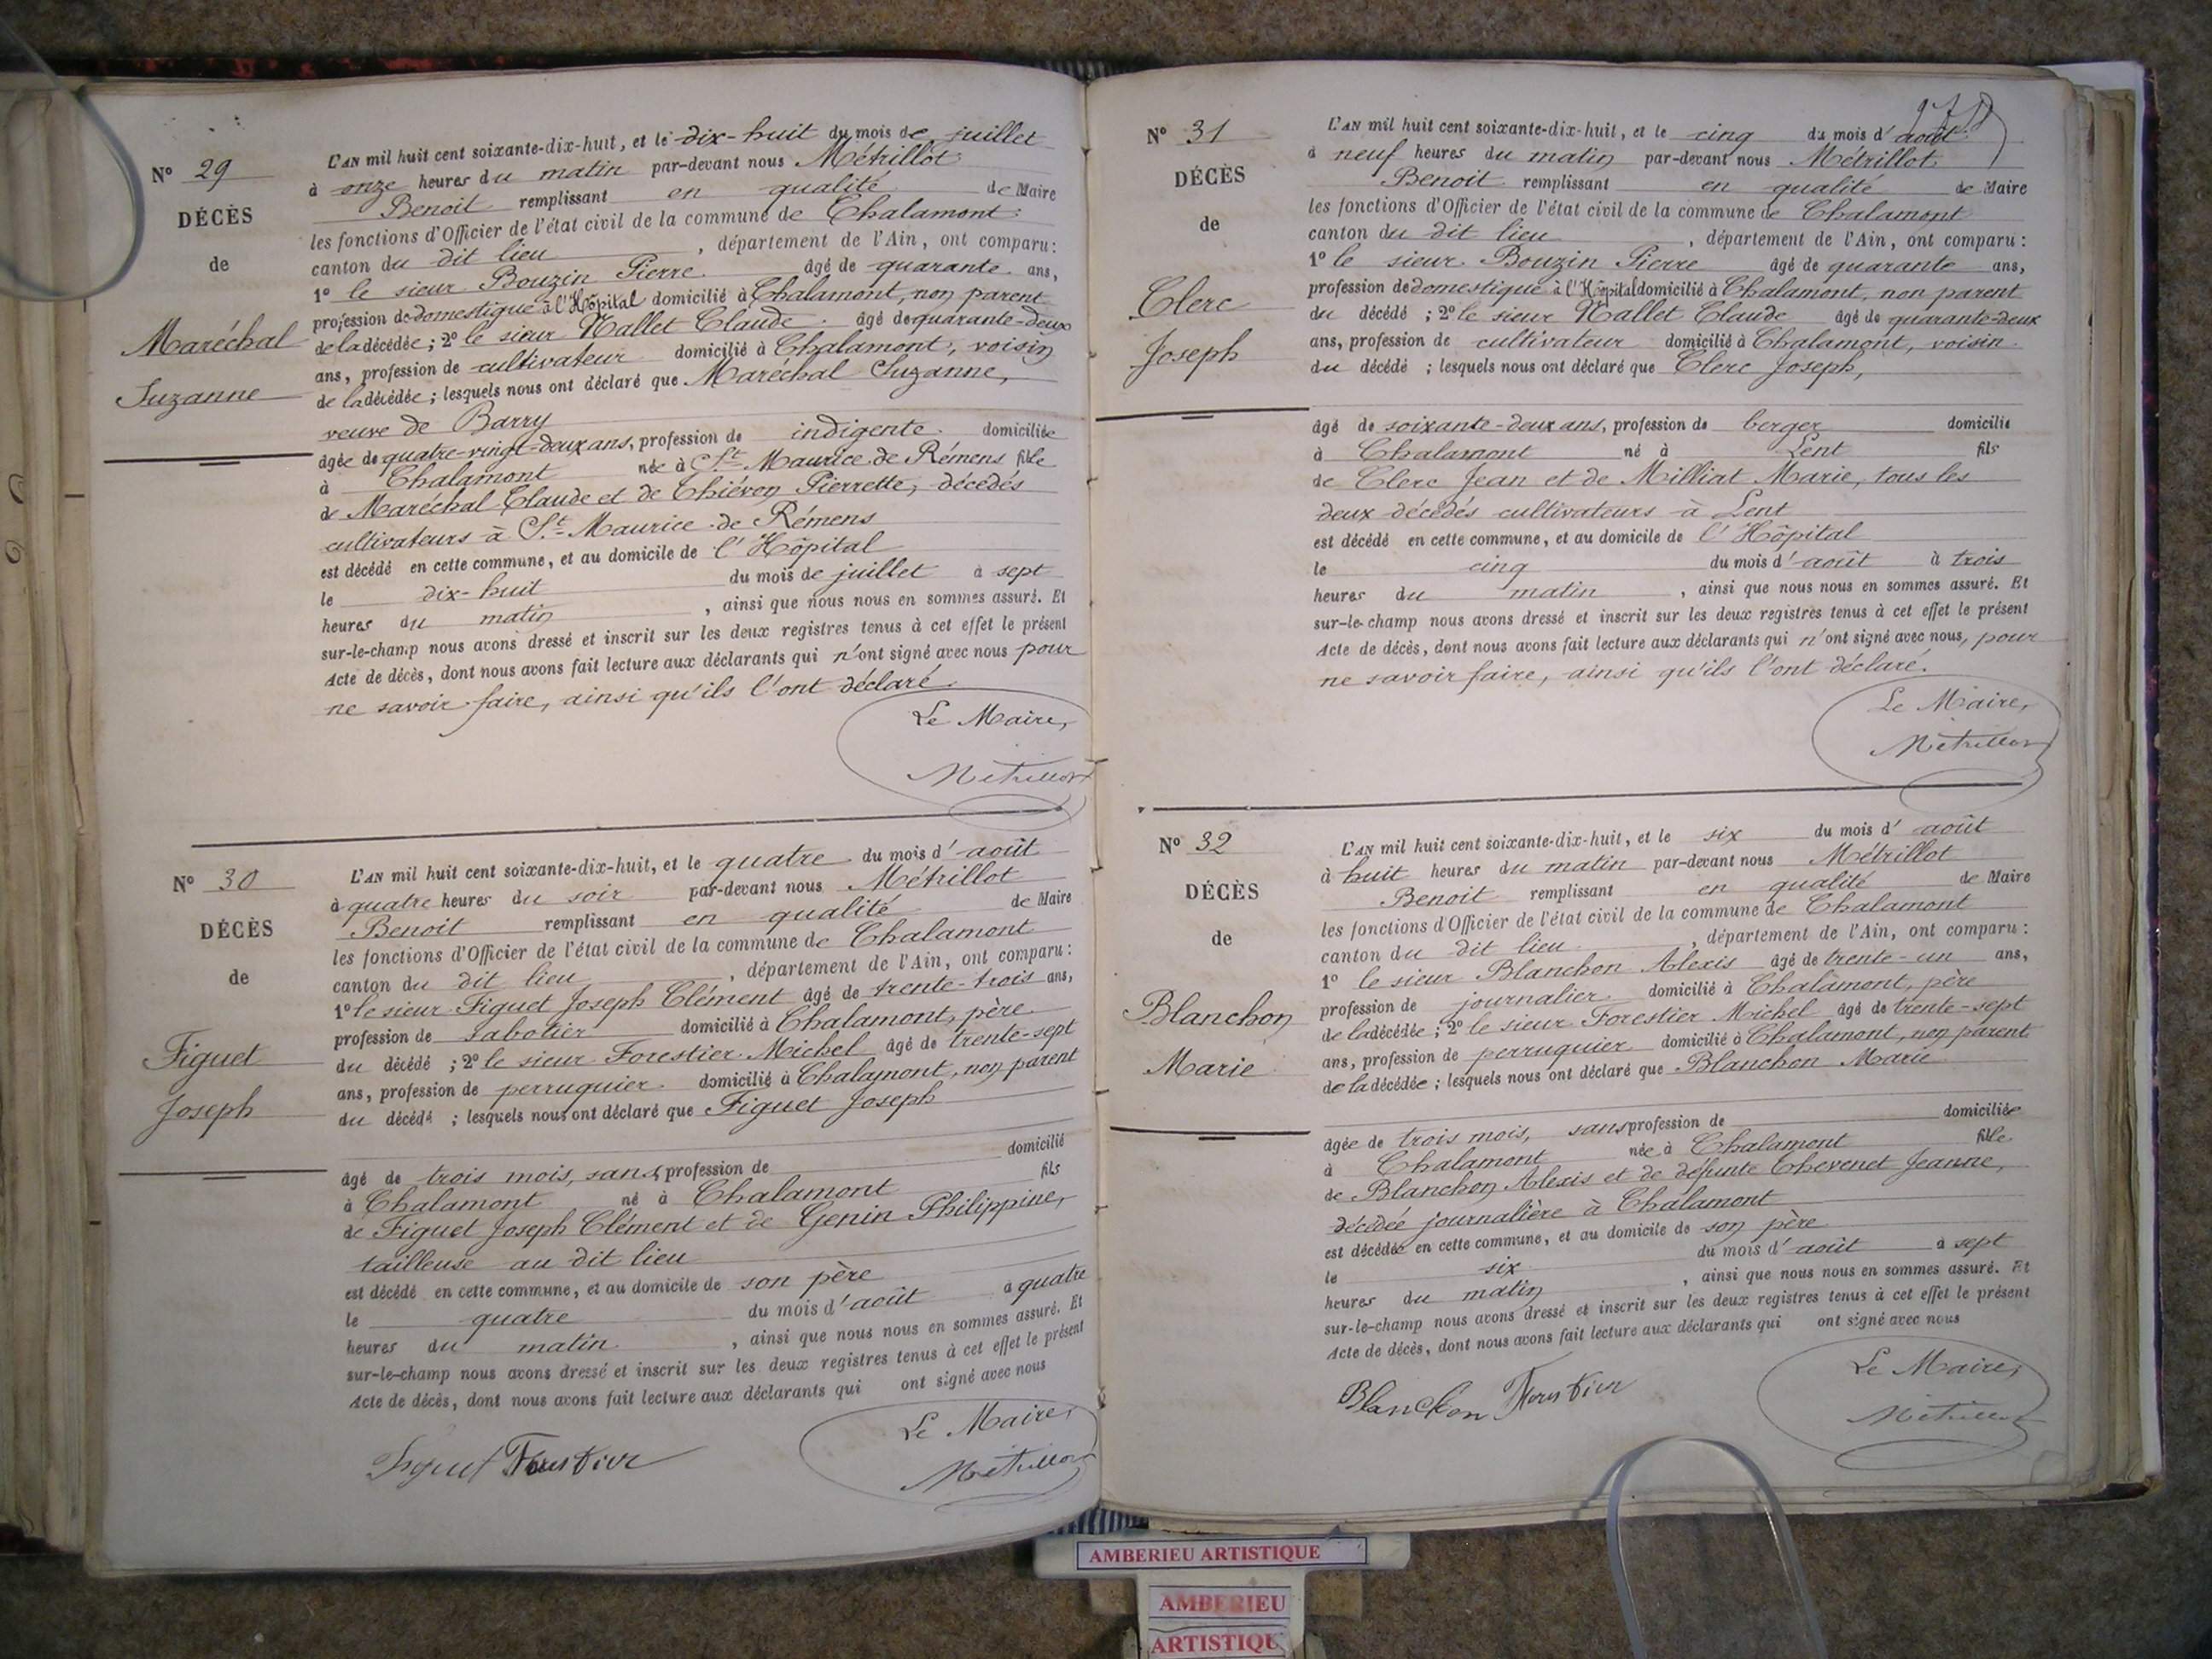 N° 29
DÉCÈS
de
Maréchal
Suzanne
L'AN mil huit cent soixante-dix-huit, et le dix-huit du mois de juillet
à onze heures du matin par-devant nous Métrillot
Benoit remplissant en qualité de Maire
les fonctions d'Officier de l'état civil de la commune de Chalamont
canton du dit lieu , département de l'Ain, ont comparu :
1° le sieur Bouzin Pierre âgé de quarante ans,
profession de domestique à l'Hôpital domicilié à Chalamont, non parent
de la décédée ; 2° le sieur Nallet Claude âgé de quarante-deux
ans, profession de cultivateur domicilié à Chalamont, voisin
de la décédée ; lesquels nous ont déclaré que Maréchal Suzanne,
veuve de Barry
âgée de quatre-vingt-deux ans, profession de indigente domiciliée
à Chalamont née à St Maurice de Rémens fille
de Maréchal Claude et de Thiévon Pierrette, décédés
cultivateurs à St Maurice de Rémens
est décédé en cette commune, et au domicile de l'Hôpital
le dix-huit du mois de juillet à sept
heures du matin , ainsi que nous nous en sommes assuré. Et
sur-le-champ nous avons dressé et inscrit sur les deux registres tenus à cet effet le présent
Acte de décès, dont nous avons fait lecture aux déclarants qui n'ont signé avec nous pour
ne savoir faire, ainsi qu'ils l'ont déclaré.
Le Maire,
Métrillot
N° 30
DÉCÈS
de
Figuet
Joseph
L'AN mil huit cent soixante-dix-huit, et le quatre du mois d'août
à quatre heures du soir par-devant nous Métrillot
Benoit remplissant en qualité de Maire
les fonctions d'Officier de l'état civil de la commune de Chalamont
canton du dit lieu , département de l'Ain, ont comparu :
1° le sieur Figuet Joseph Clément âgé de trente-trois ans,
profession de sabotier domicilié à Chalamont, père
du décédé ; 2° le sieur Forestier Michel âgé de trente-sept
ans, profession de perruquier domicilié à Chalamont, non parent
du décédé ; lesquels nous ont déclaré que Figuet Joseph
âgé de trois mois, sans profession de domicilié
à Chalamont né à Chalamont fils
de Figuet Joseph Clément et de Genin Philippine,
tailleuse au dit lieu
est décédé en cette commune, et au domicile de son père
le quatre du mois d'août à quatre
heures du matin , ainsi que nous nous en sommes assuré. Et
sur-le-champ nous avons dressé et inscrit sur les deux registres tenus à cet effet le présent
Acte de décès, dont nous avons fait lecture aux déclarants qui ont signé avec nous
Le Maire,
Figuet Forestier Métrillot
N° 31
DÉCÈS
de
Clerc
Joseph
L'AN mil huit cent soixante-dix-huit, et le cinq du mois d'août
à neuf heures du matin par-devant nous Métrillot
Benoit remplissant en qualité de Maire
les fonctions d'Officier de l'état civil de la commune de Chalamont
canton du dit lieu , département de l'Ain, ont comparu :
1° le sieur Bouzin Pierre âgé de quarante ans,
profession de domestique à l'Hôpital domicilié à Chalamont, non parent
du décédé ; 2° le sieur Nallet Claude âgé de quarante-deux
ans, profession de cultivateur domicilié à Chalamont, voisin
du décédé ; lesquels nous ont déclaré que Clerc Joseph,
âgé de soixante-deux ans, profession de berger domicilié
à Chalamont né à Lent fils
de Clerc Jean et de Milliat Marie, tous les
deux décédés cultivateurs à Lent
est décédé en cette commune, et au domicile de l'Hôpital
le cinq du mois d'août à trois
heures du matin , ainsi que nous nous en sommes assuré. Et
sur-le-champ nous avons dressé et inscrit sur les deux registres tenus à cet effet le présent
Acte de décès, dont nous avons fait lecture aux déclarants qui n'ont signé avec nous, pour
ne savoir faire, ainsi qu'ils l'ont déclaré.
Le Maire,
Métrillot
N° 32
DÉCÈS
de
Blanchon
Marie
L'AN mil huit cent soixante-dix-huit, et le six du mois d'août
à huit heures du matin par-devant nous Métrillot
Benoit remplissant en qualité de Maire
les fonctions d'Officier de l'état civil de la commune de Chalamont
canton du dit lieu , département de l'Ain, ont comparu :
1° le sieur Blanchon Alexis âgé de trente-un ans,
profession de journalier domicilié à Chalamont, père
de la décédée ; 2° le sieur Forestier Michel âgé de trente-sept
ans, profession de perruquier domicilié à Chalamont, non parent
de la décédée ; lesquels nous ont déclaré que Blanchon Marie
âgée de trois mois, sans profession de domiciliée
à Chalamont née à Chalamont fille
de Blanchon Alexis et de défunte Thevenet Jeanne,
décédée journalière à Chalamont
est décédée en cette commune, et au domicile de son père
le six du mois d'août à sept
heures du matin , ainsi que nous nous en sommes assuré. Et
sur-le-champ nous avons dressé et inscrit sur les deux registres tenus à cet effet le présent
Acte de décès, dont nous avons fait lecture aux déclarants qui ont signé avec nous
Le Maire,
Blanchon Forestier Métrillot
AMBERIEU ARTISTIQUE
AMBERIEU
ARTISTIQU